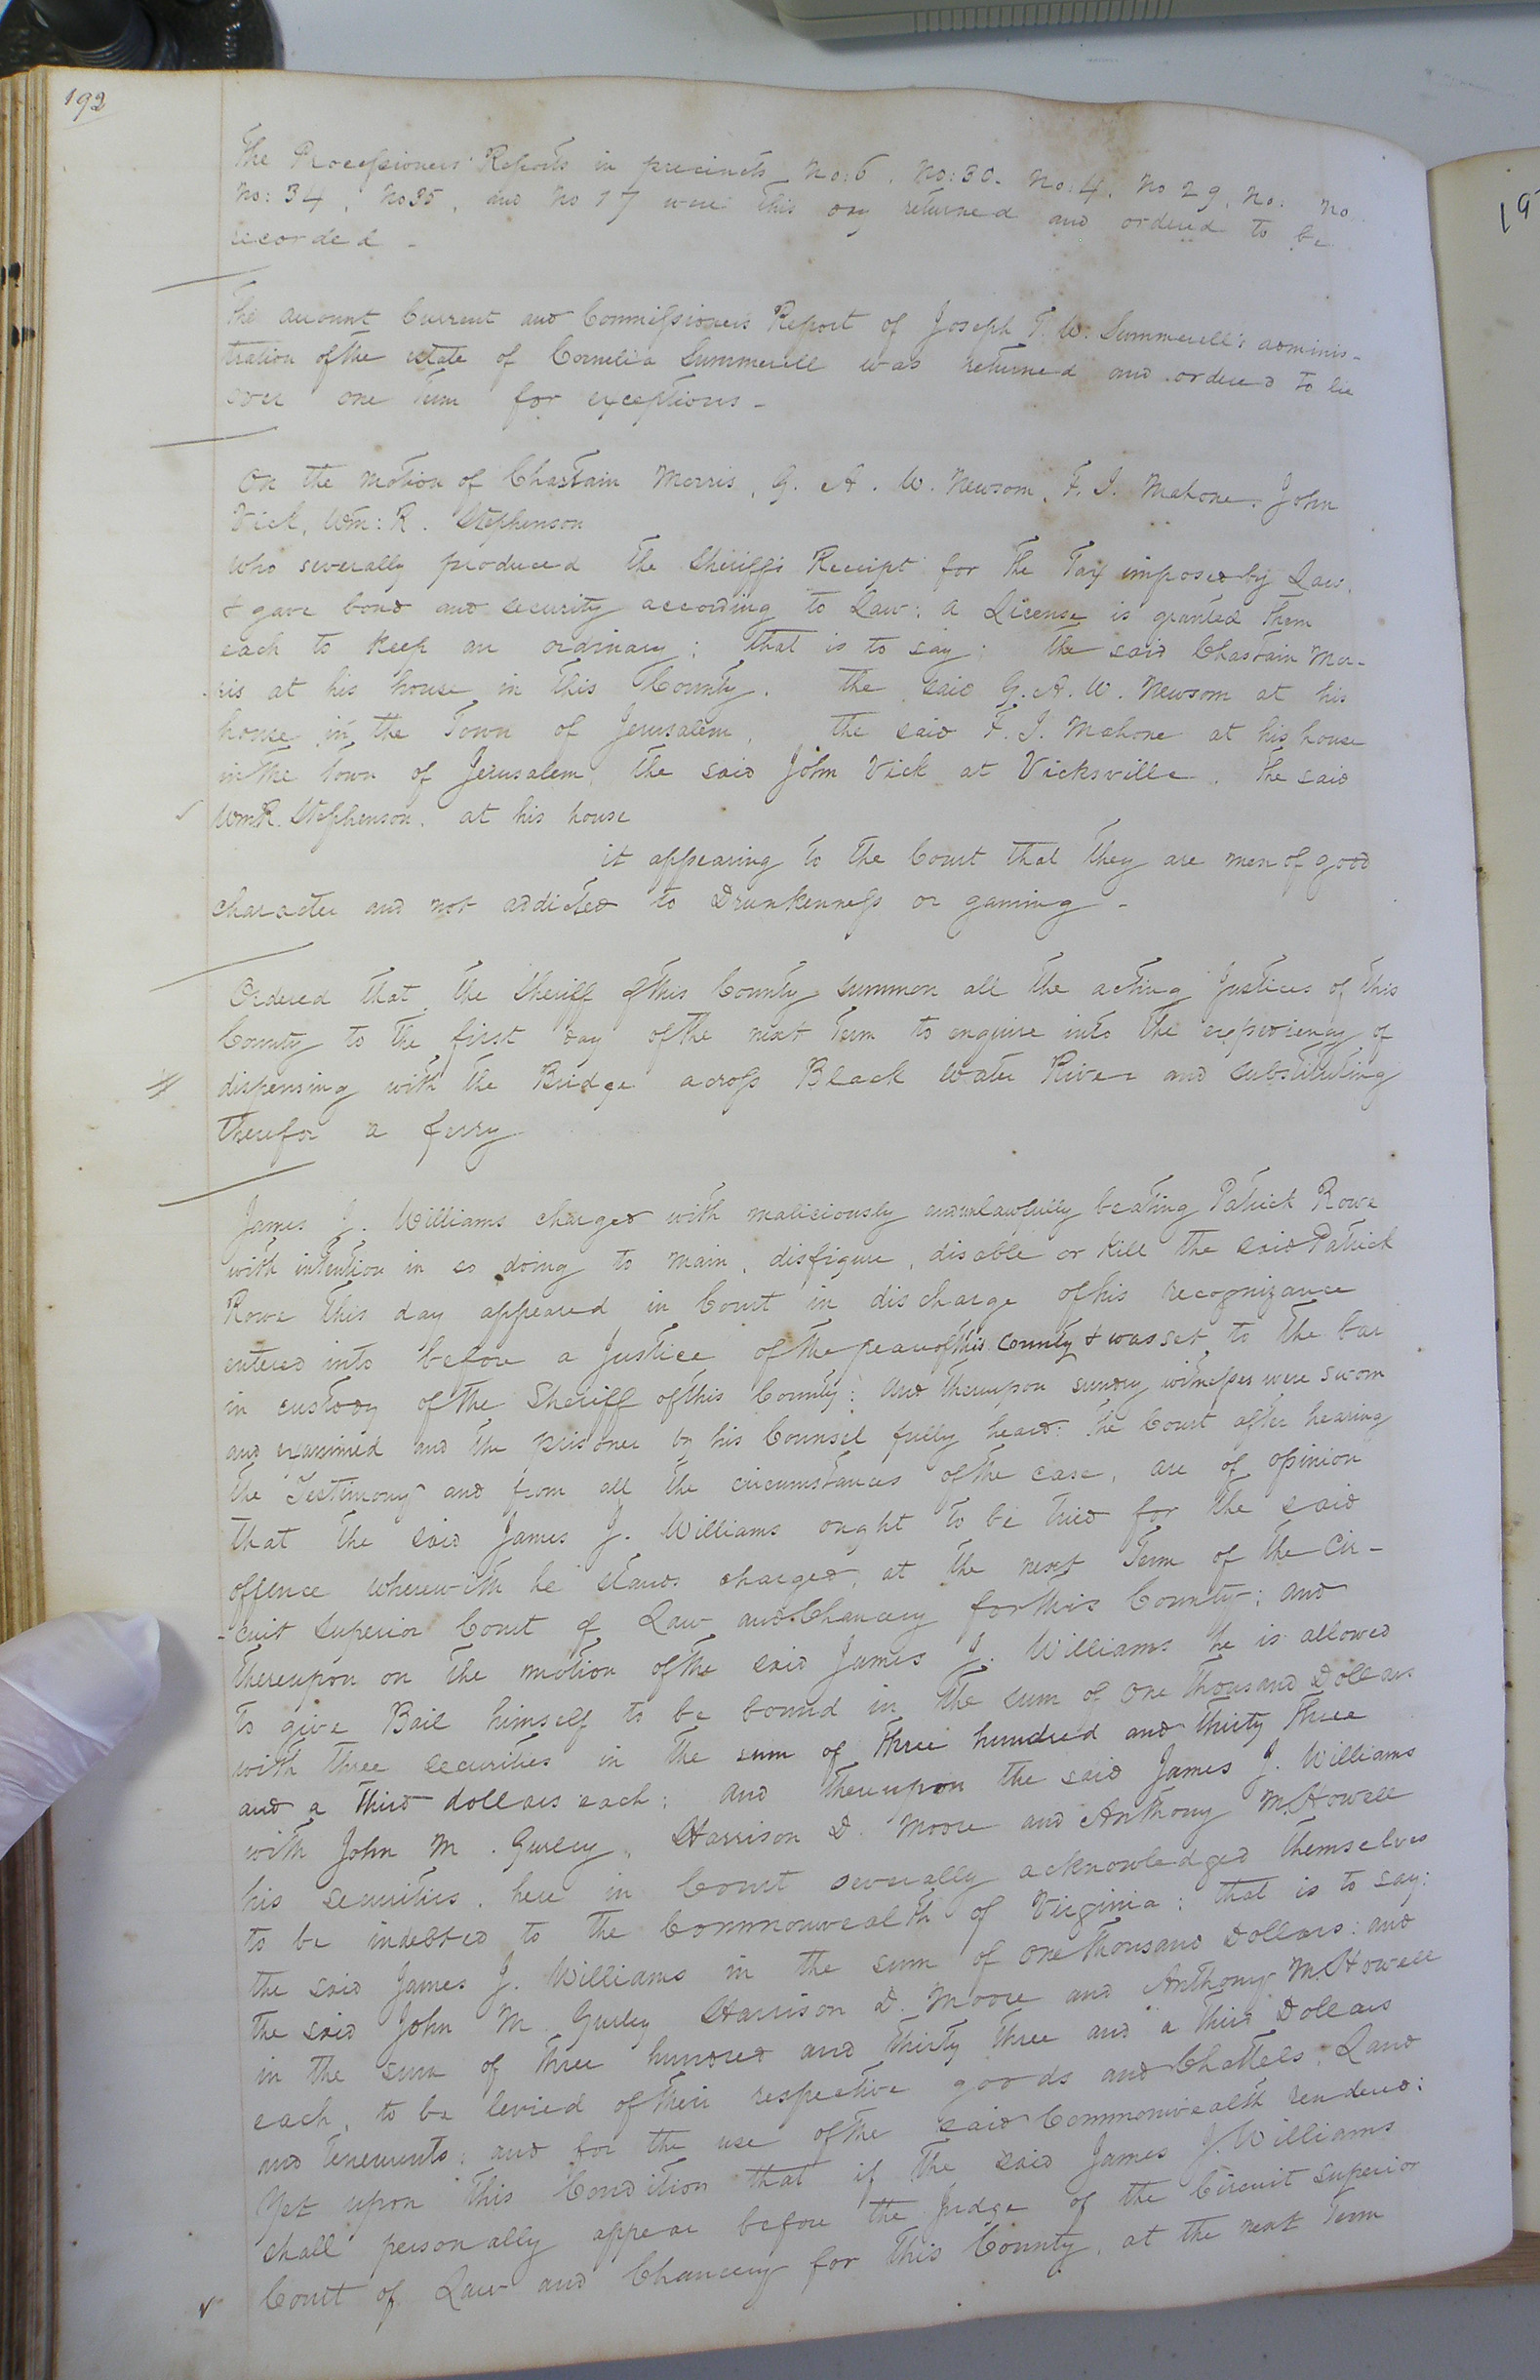 192
The Processioners' Reports in precincts No: 6, No: 30. No: 4, No 29, No: No
No: 34, No 35, and No 17 were this day returned and ordered to be
recorded –
The account Current and Commissioners Report of Joseph T. W. Summerell's adminis-
tration of the estate of Cornelia Summerell was returned and ordered to lie
over one Term for exceptions –
On the motion of Chastain Morris, G. A. W. Newsom, F. I. Mahone, John
Vick, Wm: R. Stephenson
who severally produced the Sheriff's Receipt for the Tax imposed by Law,
& gave bond and security according to Law: a License is granted them
each to keep an ordinary; that is to say: the said Chastain Mor-
-ris at his house in this County. the said G. A. W. Newsom at his
house in the Town of Jerusalem, the said F. I. Mahone at his house
in the Town of Jerusalem, the said John Vick at Vicksville. The said
Wm R. Stephenson. at his house
it appearing to the Court that they are men of good
character and not addicted to Drunkenness or gaming –
Ordered that the Sheriff of this County summon all the acting Justices of this
County to the first day of the next Term to enquire into the expediency of
dispensing with the Bridge across Black Water River and substituting
therefor a ferry
James J. Williams charged with maliciously and unlawfully beating Patrick Rowe
with intention in so doing to maim, disfigure, disable or kill the said Patrick
Rowe this day appeared in Court in discharge of his recognizance
entered into before a Justice of the peace of this County & was set to the bar
in custody of the Sheriff of this County: And thereupon sundry witnesses were sworn
and examined and the prisoner by his Counsel fully heard: The Court after hearing
the Testimony and from all the circumstances of the case, are of opinion
that the said James J. Williams ought to be tried for the said
offence wherewith he stands charged, at the next Term of the Cir-
-cuit Superior Court of Law and Chancery for this County; and
thereupon on the motion of the said James J. Williams he is allowed
to give Bail himself to be bound in the sum of One thousand Dollars
with three securities in the sum of three hundred and thirty three
and a third dollars each; and thereupon the said James J. Williams
with John M. Gurley, Harrison D. Moore and Anthony M. Howell
his securities, here in Court severally acknowledged themselves
to be indebted to the Commonwealth of Virginia; that is to say:
the said James J. Williams in the sum of One thousand Dollars: and
the said John M Gurley Harrison D. Moore and Anthony M. Howell
in the sum of three hundred and thirty three and a third Dollars
each, to be levied of their respective goods and Chattels, Land
and Tenements; and for the use of the said Commonwealth rendered:
Yet upon this Condition that if the said James J. Williams
shall personally appear before the Judge of the Circuit Superior
Court of Law and Chancery for this County, at the next Term